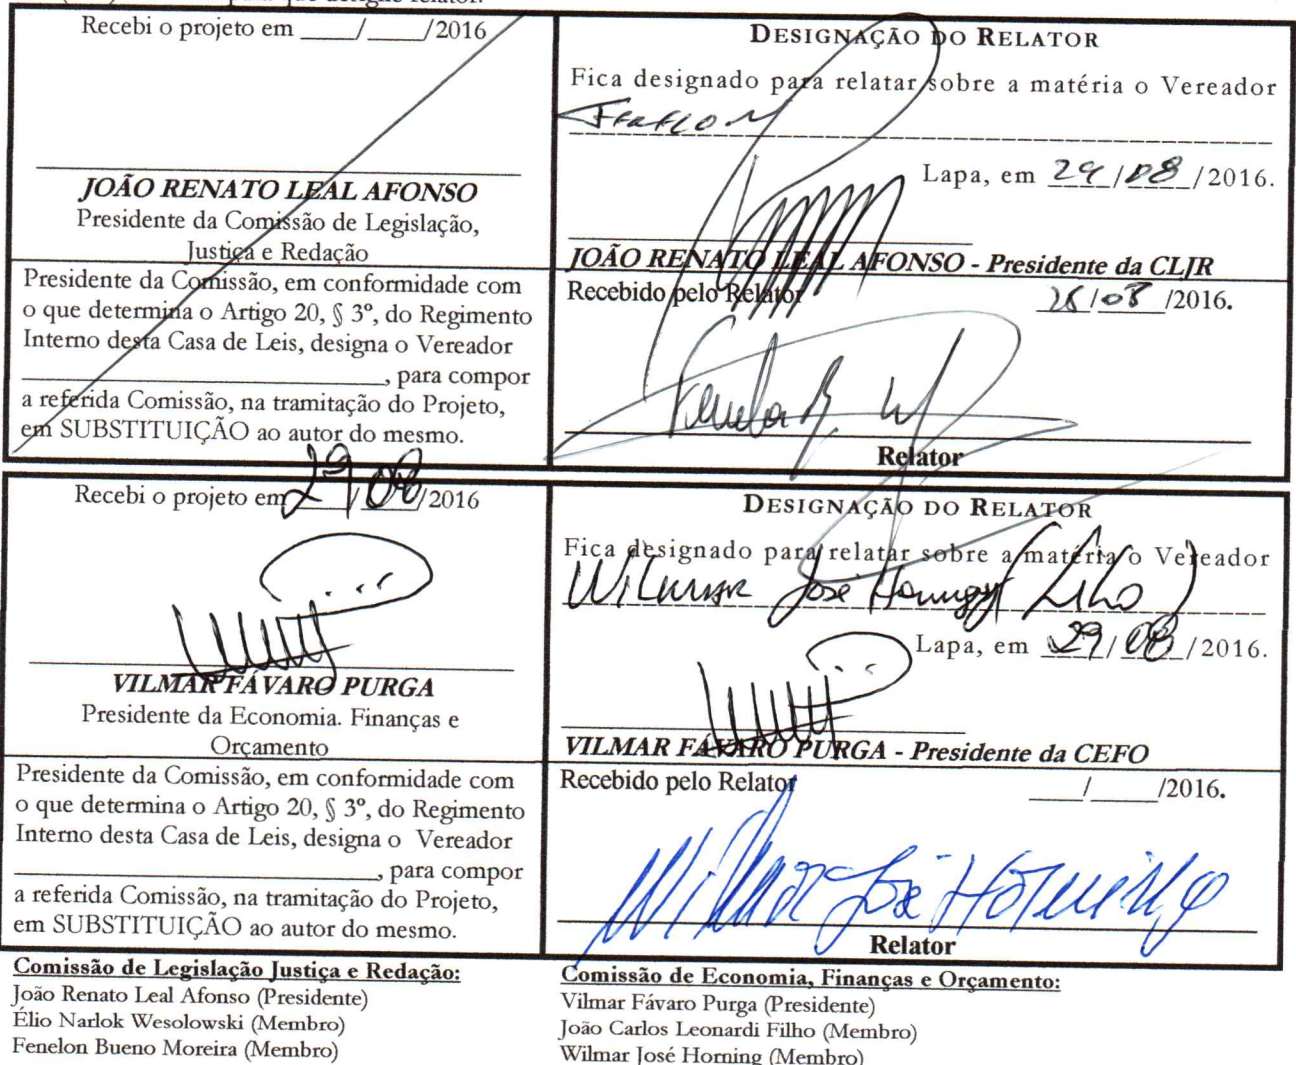 Recebi o projeto em ____/____/2016
JOÃO RENATO LEAL AFONSO
Presidente da Comissão de Legislação,
Justiça e Redação
Presidente da Comissão, em conformidade com
o que determina o Artigo 20, § 3º, do Regimento
Interno desta Casa de Leis, designa o Vereador
____________, para compor
a referida Comissão, na tramitação do Projeto,
em SUBSTITUIÇÃO ao autor do mesmo.
DESIGNAÇÃO DO RELATOR
Fica designado para relatar sobre a matéria o Vereador
Lapa, em 29/08/2016.
JOÃO RENATO LEAL AFONSO - Presidente da CLJR
Recebido pelo Relator /08/2016.
Relator
Recebi o projeto em 29/08/2016
VILMAR FÁVARO PURGA
Presidente da Economia. Finanças e
Orçamento
Presidente da Comissão, em conformidade com
o que determina o Artigo 20, § 3º, do Regimento
Interno desta Casa de Leis, designa o Vereador
____________, para compor
a referida Comissão, na tramitação do Projeto,
em SUBSTITUIÇÃO ao autor do mesmo.
DESIGNAÇÃO DO RELATOR
Fica designado para relatar sobre a matéria o Vereador
Wilmar José Horning (Lilo)
Lapa, em 29/08/2016.
VILMAR FÁVARO PURGA - Presidente da CEFO
Recebido pelo Relator ____/____/2016.
Wilmar José Horning
Relator
Comissão de Legislação Justiça e Redação:
João Renato Leal Afonso (Presidente)
Élio Narlok Wesolowski (Membro)
Fenelon Bueno Moreira (Membro)
Comissão de Economia, Finanças e Orçamento:
Vilmar Fávaro Purga (Presidente)
João Carlos Leonardi Filho (Membro)
Wilmar José Horning (Membro)